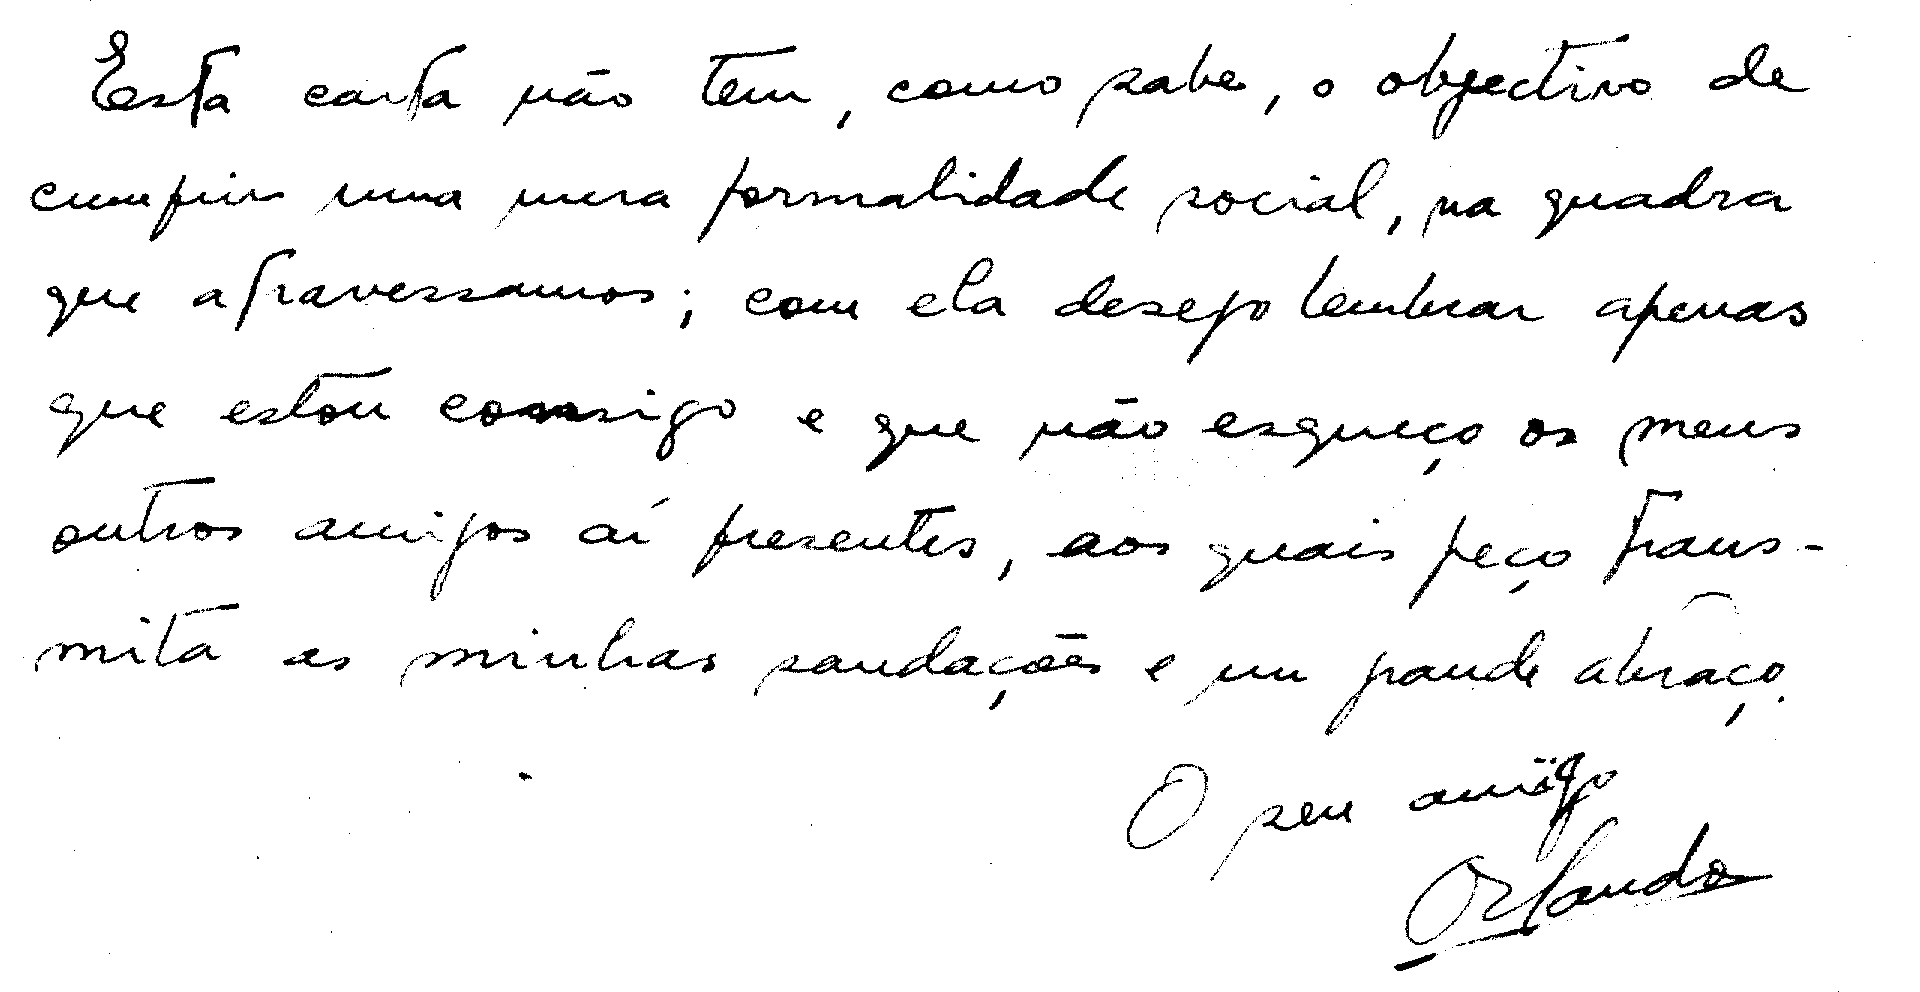 Esta carta não tem, como sabe, o objectivo de
cumprir uma mera formalidade social, na quadra
que atravessamos; com ela desejo lembrar apenas
que estou consigo e que não esqueço os meus
outros amigos aí presentes, aos quais peço trans-
mita as minhas saudações e um grande abraço.
O seu amigo
Orlando